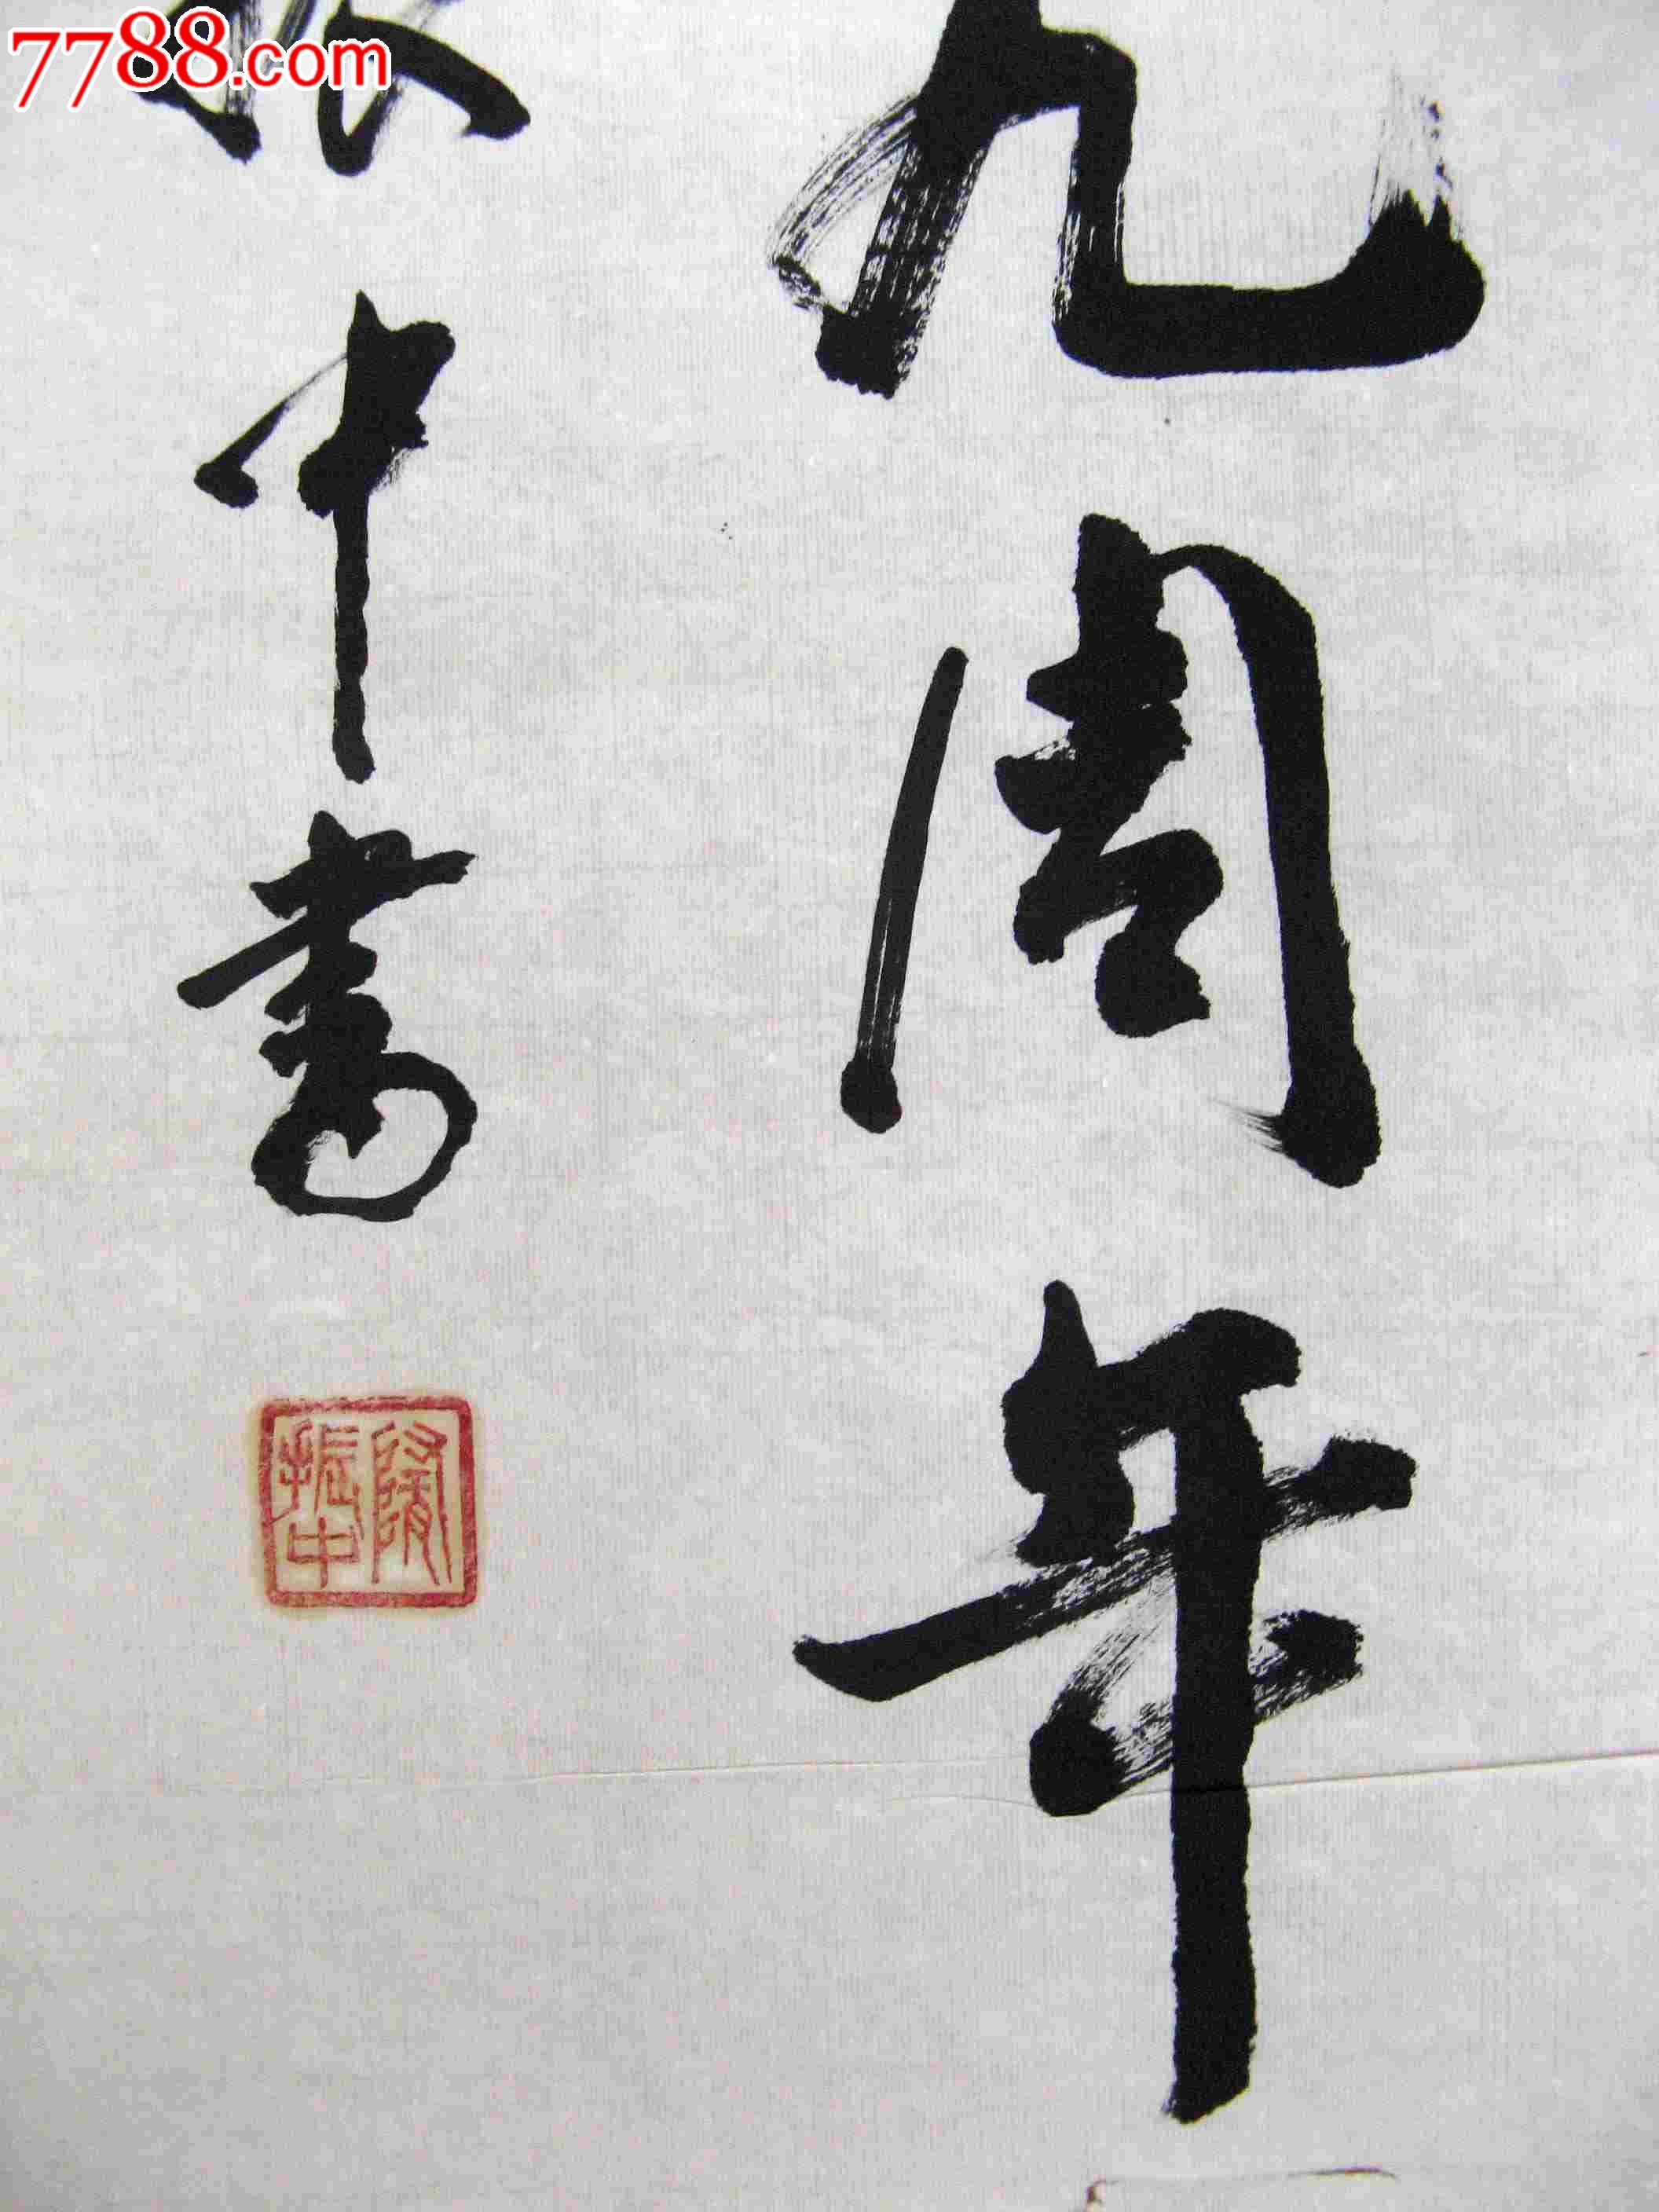 7788.com
九周年
振中書
振中